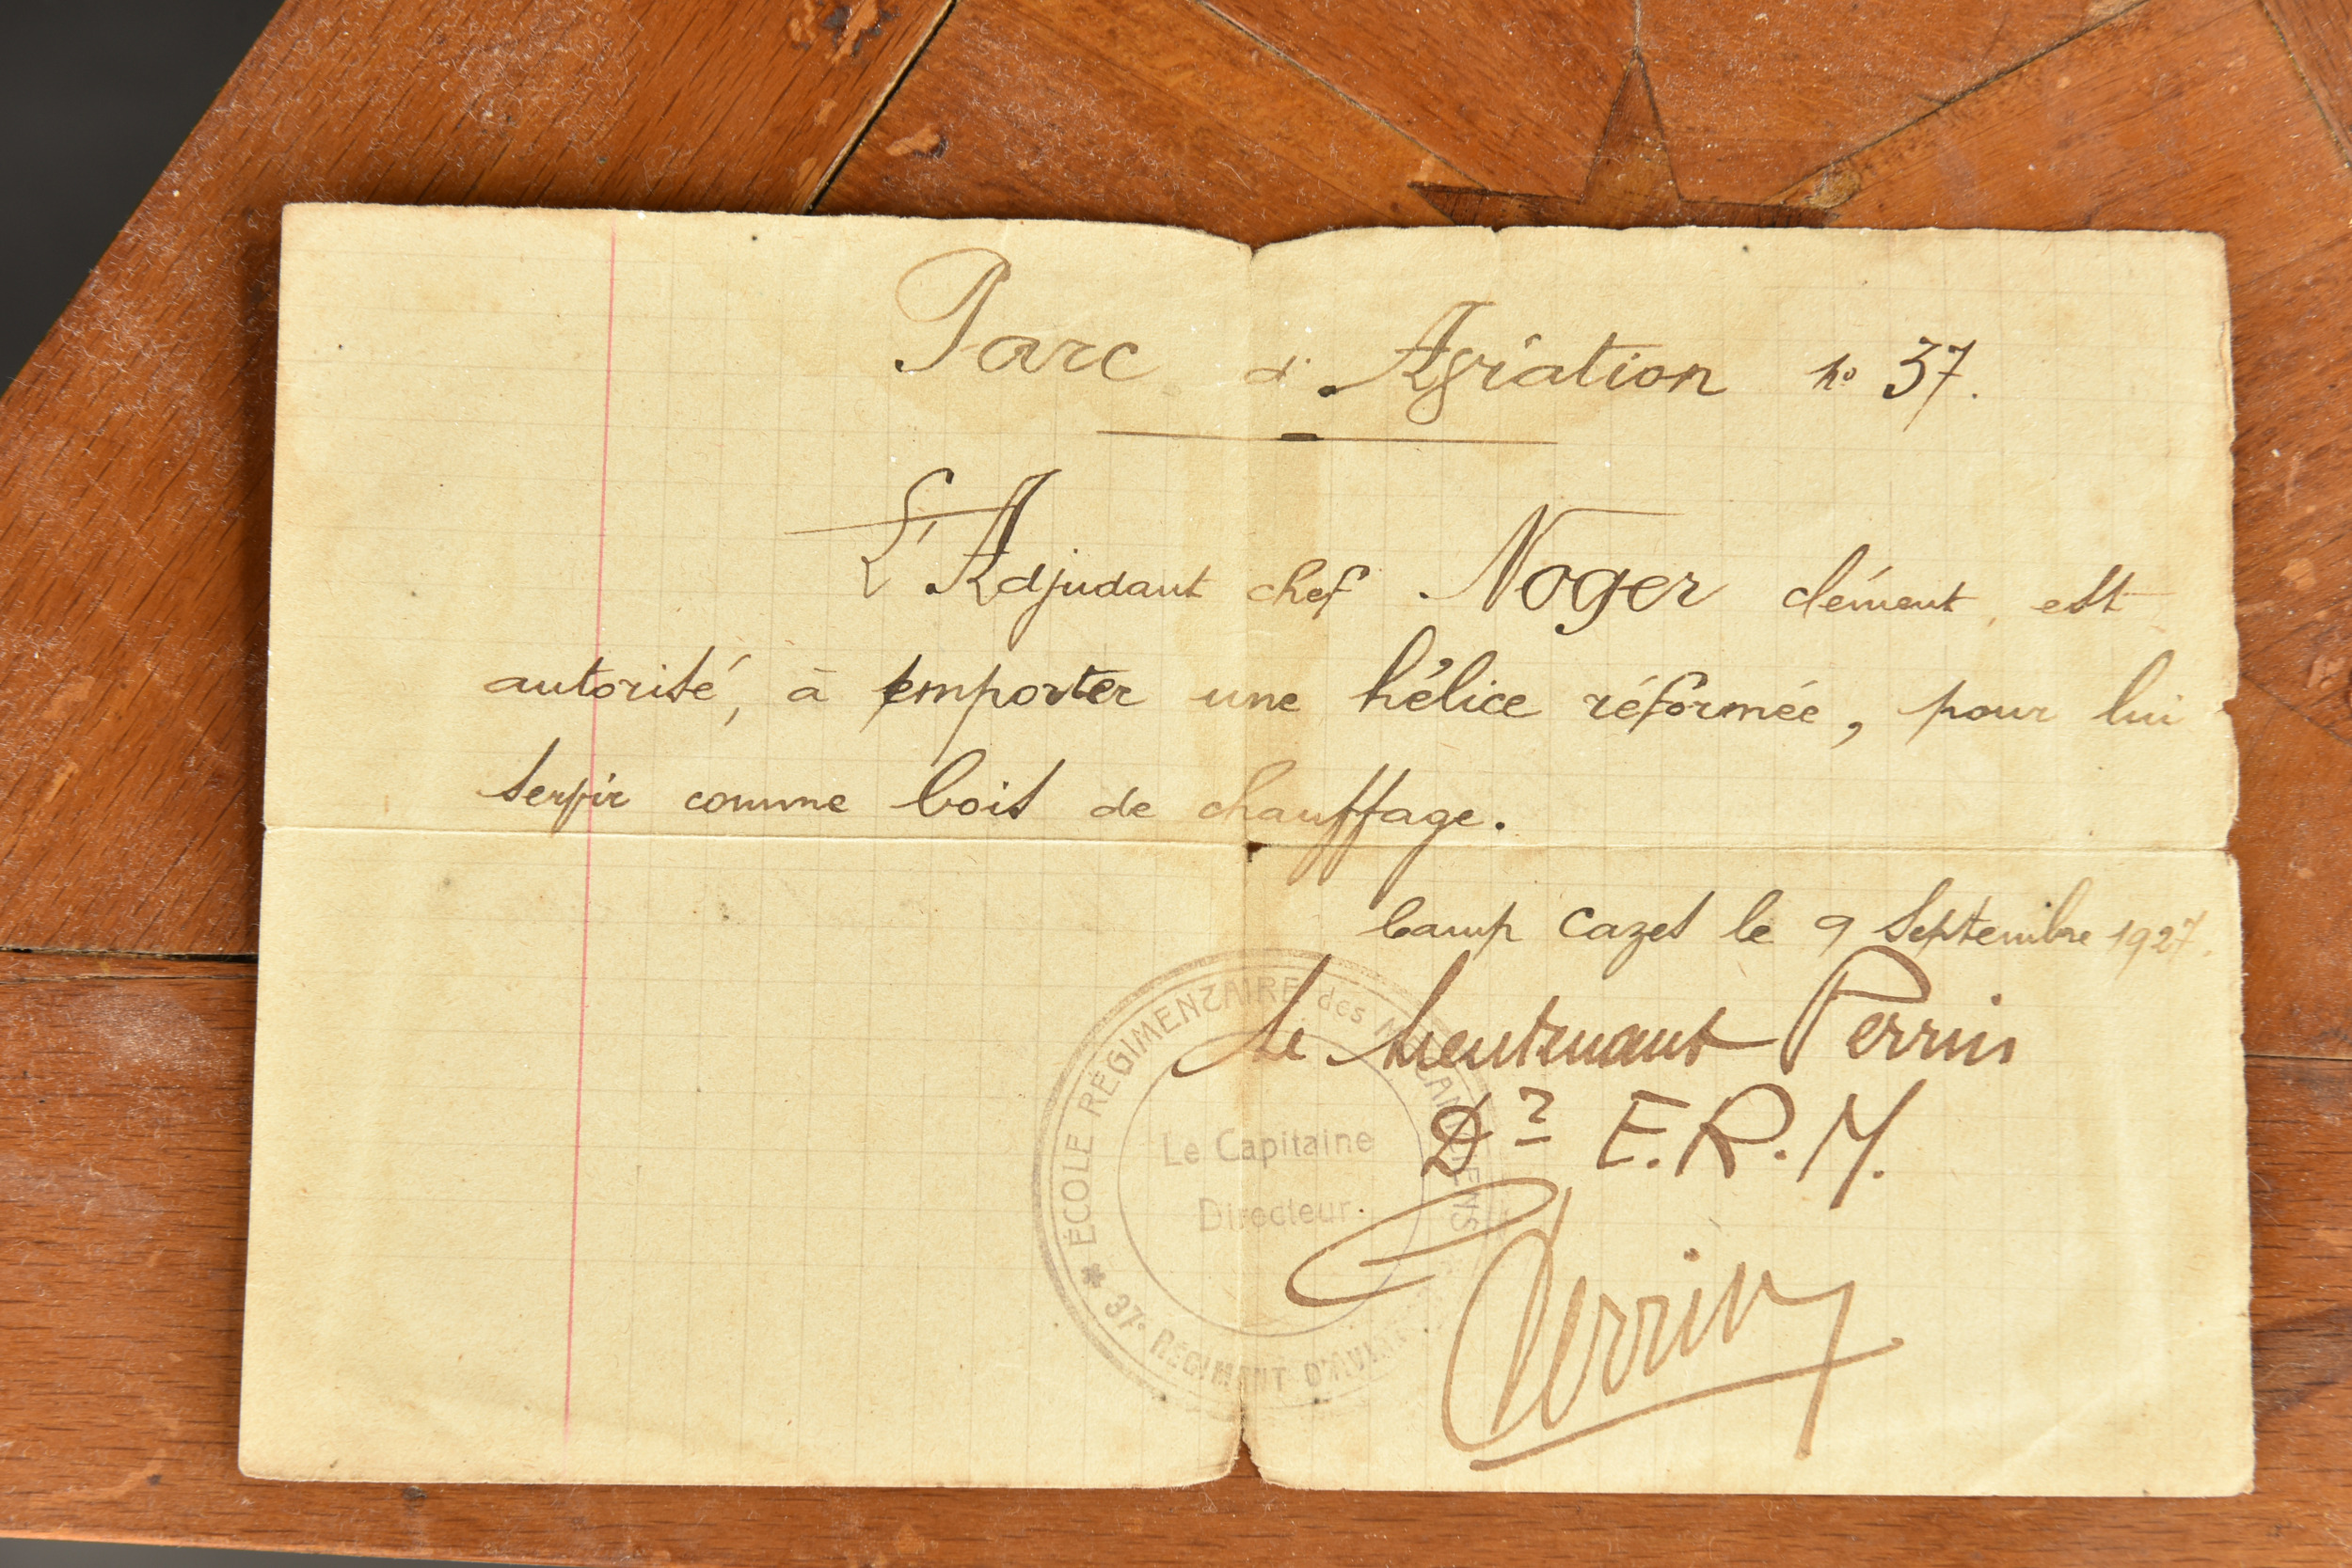 Parc d'Aviation no 37.
L'Adjudant chef Noger clément, est
autorisé, à emporter une hélice réformée, pour lui
servir comme bois de chauffage.
Camp Cazes le 9 Septembre 1927.
Le Lieutenant Perrin
Dr E.R.M.
Perrin
ÉCOLE RÉGIMENTAIRE des MÉCANICIENS
Le Capitaine
Directeur
* 37e RÉGIMENT D'AVIATION